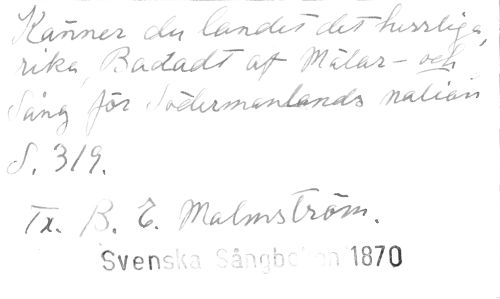 Känner du landet det herrliga,
rika, Badadt af Mälar- och
Sång för Södermanlands nation
S. 319.
Tx. B. E. Malmström.
Svenska Sångboken 1870